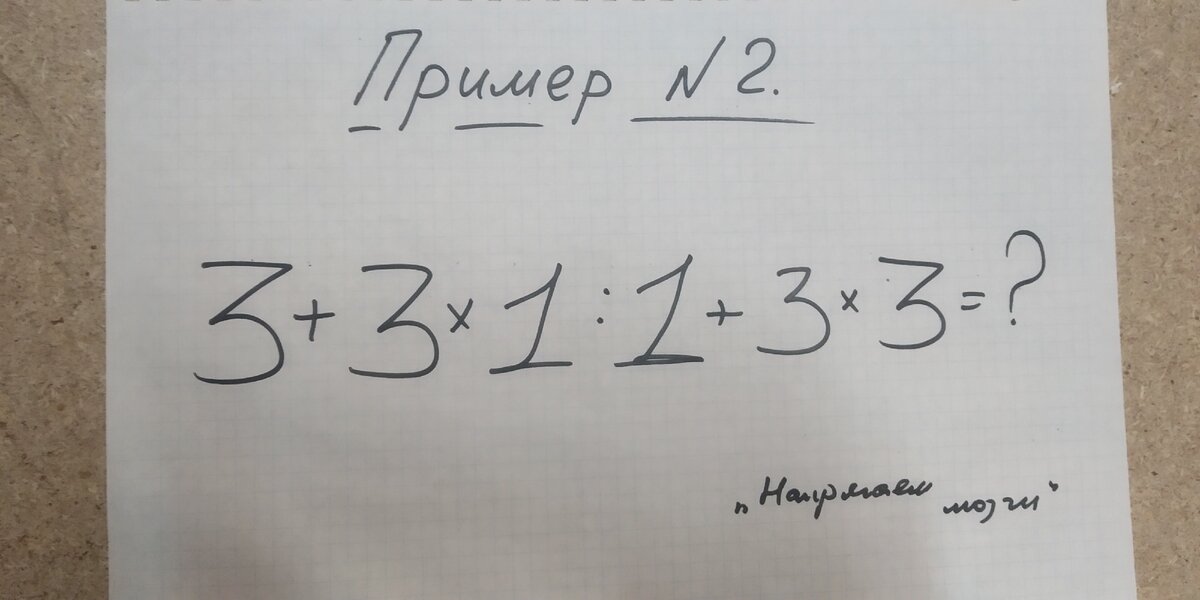 Пример N 2.
3 + 3 × 1 : 1 + 3 × 3 = ?
„Напрягаем мозги“